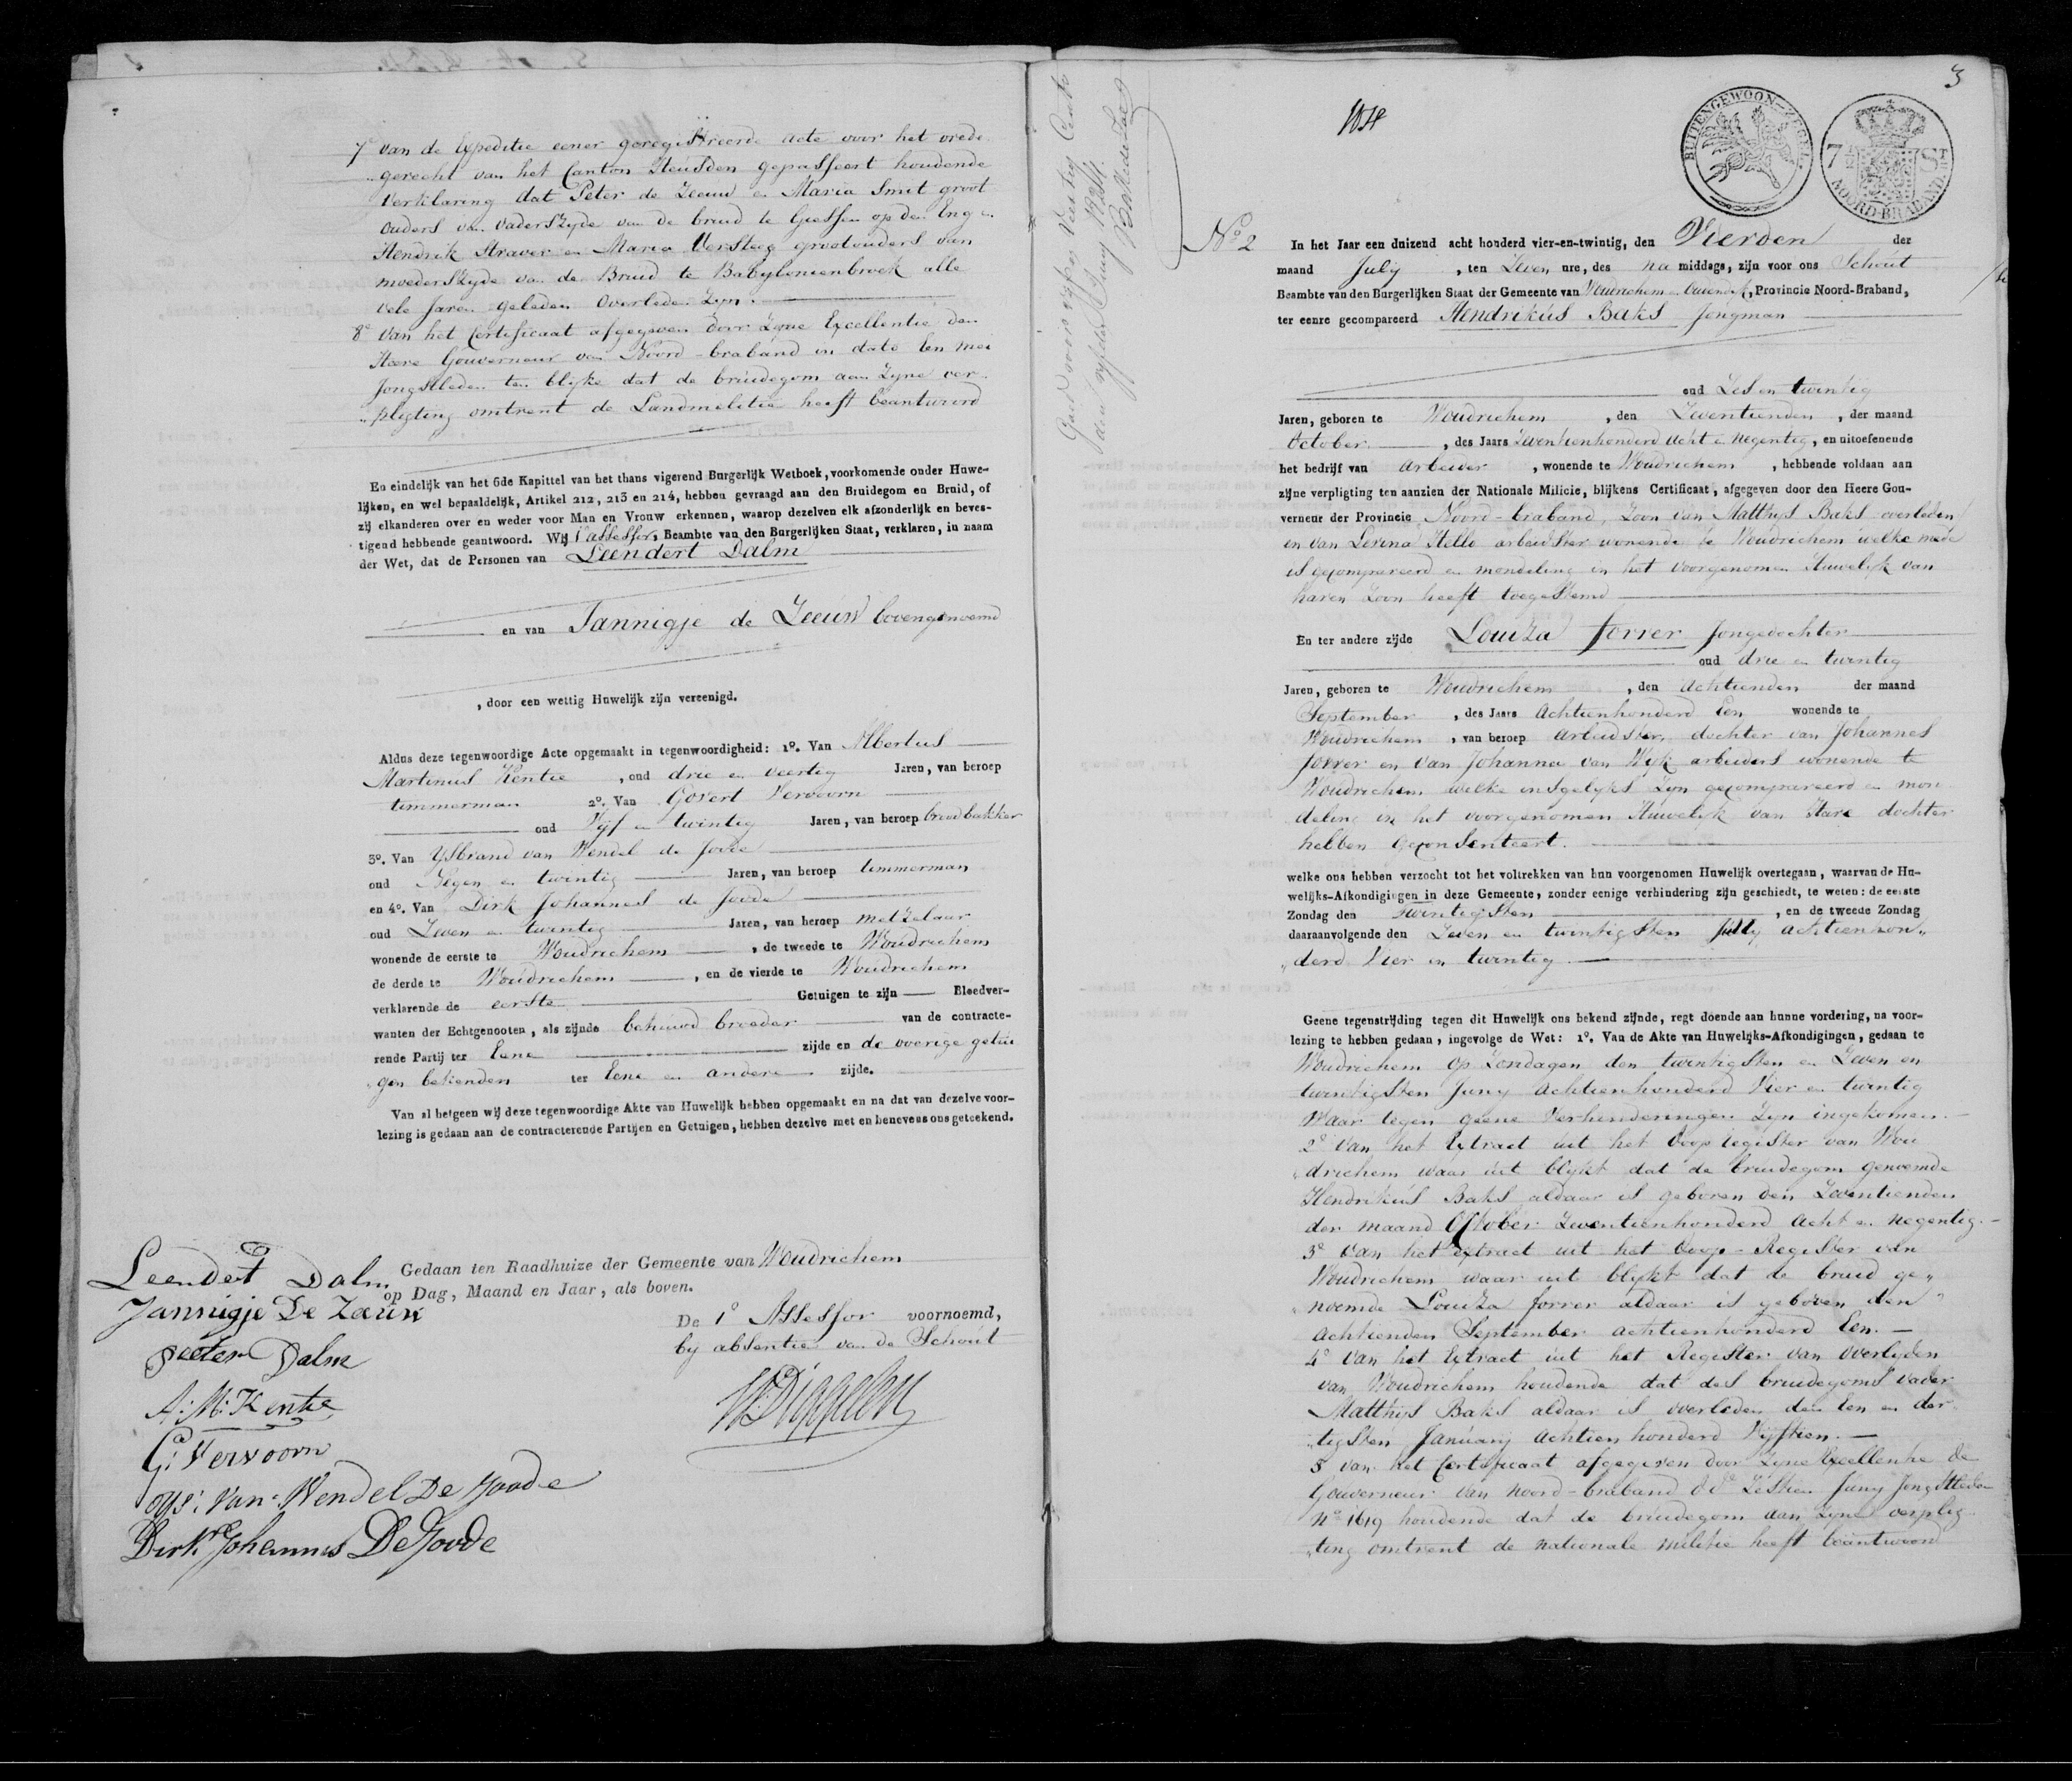 7e van de Expeditie eener geregistreerde acte voor het vrede
gerecht van het Canton Heusden gepasseert houdende
verklaring dat Peter de Zeeuw en Maria Smit groot
ouders van vaderszyde van de bruid te Giessen op den Eng en
Hendrik Straver en Maria Versteeg grootouders van
moederszyde van de Bruid te Babylonienbroek alle
vele Jaren geleden Overleden Zyn.
8e van het Certificaat afgegeven door Zyne Excellentie den
Heere Gouverneur van Noord-braband in dato Een mei
Jongstleden ten blyke dat de bruidegom aan Zyne ver
pligting omtrent de Landmilitie heeft beantwoord
En eindelijk van het 6de Kapittel van het thans vigerend Burgerlijk Wetboek, voorkomende onder Huwe-
lijken, en wel bepaaldelijk, Artikel 212, 213 en 214, hebben gevraagd aan den Bruidegom en Bruid, of
zij elkanderen over en weder voor Man en Vrouw erkennen, waarop dezelven elk afzonderlijk en beves-
tigend hebbende geantwoord. Wij Assessor, Beambte van den Burgerlijken Staat, verklaren, in naam
der Wet, dat de Personen van Leendert Dalm
en van Jannigje de Zeeuw bovengenoemd
, door een wettig Huwelijk zijn vereenigd.
Aldus deze tegenwoordige Acte opgemaakt in tegenwoordigheid: 1o. Van Albertus
Martinus Kentie , oud drie en veertig Jaren, van beroep
timmerman 2o. Van Govert Vervoorn
oud Vyf en twintig Jaren, van beroep broodbakker
3o. Van Ysbrand van Wendel de Joode
oud Negen en twintig Jaren, van beroep timmerman
en 4o. Van Dirk Johannes de Joode
oud Zeven en twintig Jaren, van beroep metzelaar
wonende de eerste te Woudrichem , de tweede te Woudrichem
de derde te Woudrichem , en de vierde te Woudrichem
verklarende de eerste Getuigen te zijn Bloedver-
wanten der Echtgenooten, als zijnde behuwd broeder van de contracte-
rende Partij ter Eene zijde en de overige getui
gen bekenden ter Eene en andere zijde.
Van al hetgeen wij deze tegenwoordige Akte van Huwelijk hebben opgemaakt en na dat van dezelve voor-
lezing is gedaan aan de contracterende Partijen en Getuigen, hebben dezelve met en benevens ons geteekend.
Gedaan ten Raadhuize der Gemeente van Woudrichem
op Dag, Maand en Jaar, als boven.
De 1e Assessor voornoemd,
by absentie van de Schout
Leendert Dalm
Jannigje De Zeeuw
Peeter Dalm
A: M: Kentie
G: Vervoorn
Ysb: Van Wendel De Joode
Dirk Johannes De Joode
3
BUITENGEWOON-ZEGEL
7 1/2 ST
NOORD-BRABAND.
No 2
In het Jaar een duizend acht honderd vier-en-twintig, den Vierden der
maand July , ten Zeven ure, des na middags, zijn voor ons Schout
Beambte van den Burgerlijken Staat der Gemeente van Woudrichem en Oudendyk, Provincie Noord-Braband,
ter eenre gecompareerd Hendrikus Baks Jongman
oud Zes en twintig
Jaren, geboren te Woudrichem , den Zeventienden , der maand
October , des Jaars Zeventienhonderd Acht en Negentig, en uitoefenende
het bedrijf van Arbeider , wonende te Woudrichem , hebbende voldaan aan
zijne verpligting ten aanzien der Nationale Milicie, blijkens Certificaat, afgegeven door den Heere Gou-
verneur der Provincie Noord-braband Zoon van Matthys Baks overleden
en van Levina Stello arbeidster wonende te Woudrichem welke mede
is gecompareerd en mondeling in het voorgenomen Huwelijk van
haren Zoon heeft toegestemd
En ter andere zijde Louiza Forrer Jongedochter
oud drie en twintig
Jaren, geboren te Woudrichem , den Achtienden der maand
September , des Jaars Achtienhonderd Een wonende te
Woudrichem , van beroep Arbeidster, dochter van Johannes
Forrer en van Johanna van Wyk arbeiders wonende te
Woudrichem welke insgelyks Zyn gecompareerd en mon
deling in het voorgenomen Huwelyk van Hare dochter
hebben geconsenteert.
welke ons hebben verzocht tot het voltrekken van hun voorgenomen Huwelijk overtegaan, waarvan de Hu-
welijks-Afkondigingen in deze Gemeente, zonder eenige verhindering zijn geschiedt, te weten: de eerste
Zondag den twintigsten , en de tweede Zondag
daaraanvolgende den Zeven en twintigsten July achtienhon„
„derd Vier en twintig
Geene tegenstrijding tegen dit Huwelijk ons bekend zijnde, regt doende aan hunne vordering, na voor-
lezing te hebben gedaan, ingevolge de Wet: 1o. Van de Akte van Huwelijks-Afkondigingen, gedaan te
Woudrichem op Zondagen den twintigsten en Zeven en
twintigsten Juny Achtienhonderd Vier en twintig
Waar tegen geene Verhinderingen Zyn ingekomen.
2o Van het Extract uit het Doop register van Wou
„drichem waar uit blykt dat de bruidegom genoemde
Hendrikus Baks aldaar is geboren den Zeventienden
der maand October Zeventienhonderd Acht en Negentig.
3o Van het extract uit het Doop-Register van
Woudrichem waar uit blykt dat de bruid ge„
„noemde Louiza Forrer aldaar is geboren den
Achtienden September achtienhonderd Een.
4o Van het Extract uit het Register van Overlyden
van Woudrichem houdende dat des bruidegoms vader
Matthys Baks aldaar is overleden den Een en der
„tigsten January achtien honderd Vyftien.
5 van het Certificaat afgegeven door Zyne Excellentie de
Gouverneur van Noord-braband dd Zestien Juny Jongstleden
No 1619 houdende dat de bruidegom aan Zyne verplig
„ting omtrent de nationale militie heeft beantwoord